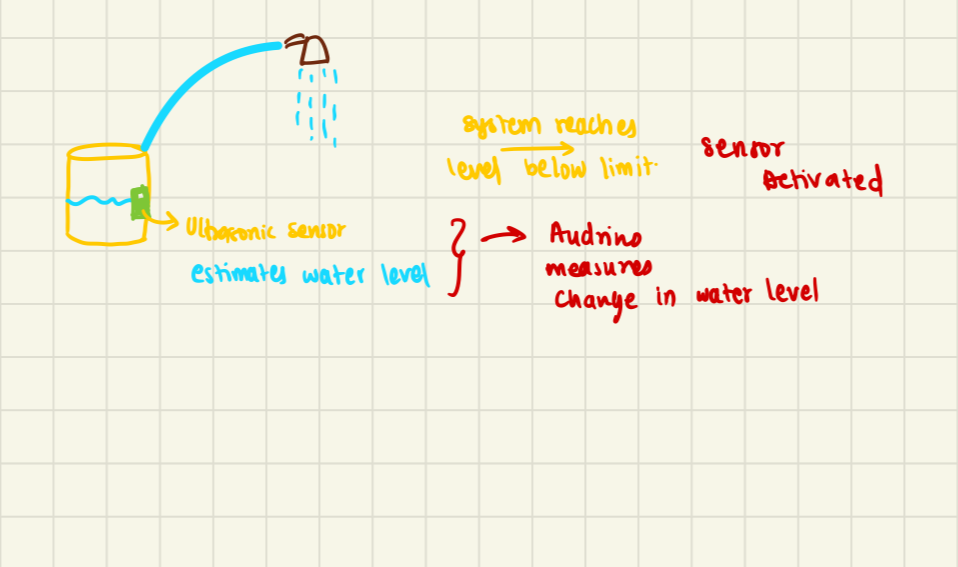 system reaches
level below limit.
sensor
Activated
Ultrasonic sensor
estimates water level
Audrino
measures
change in water level